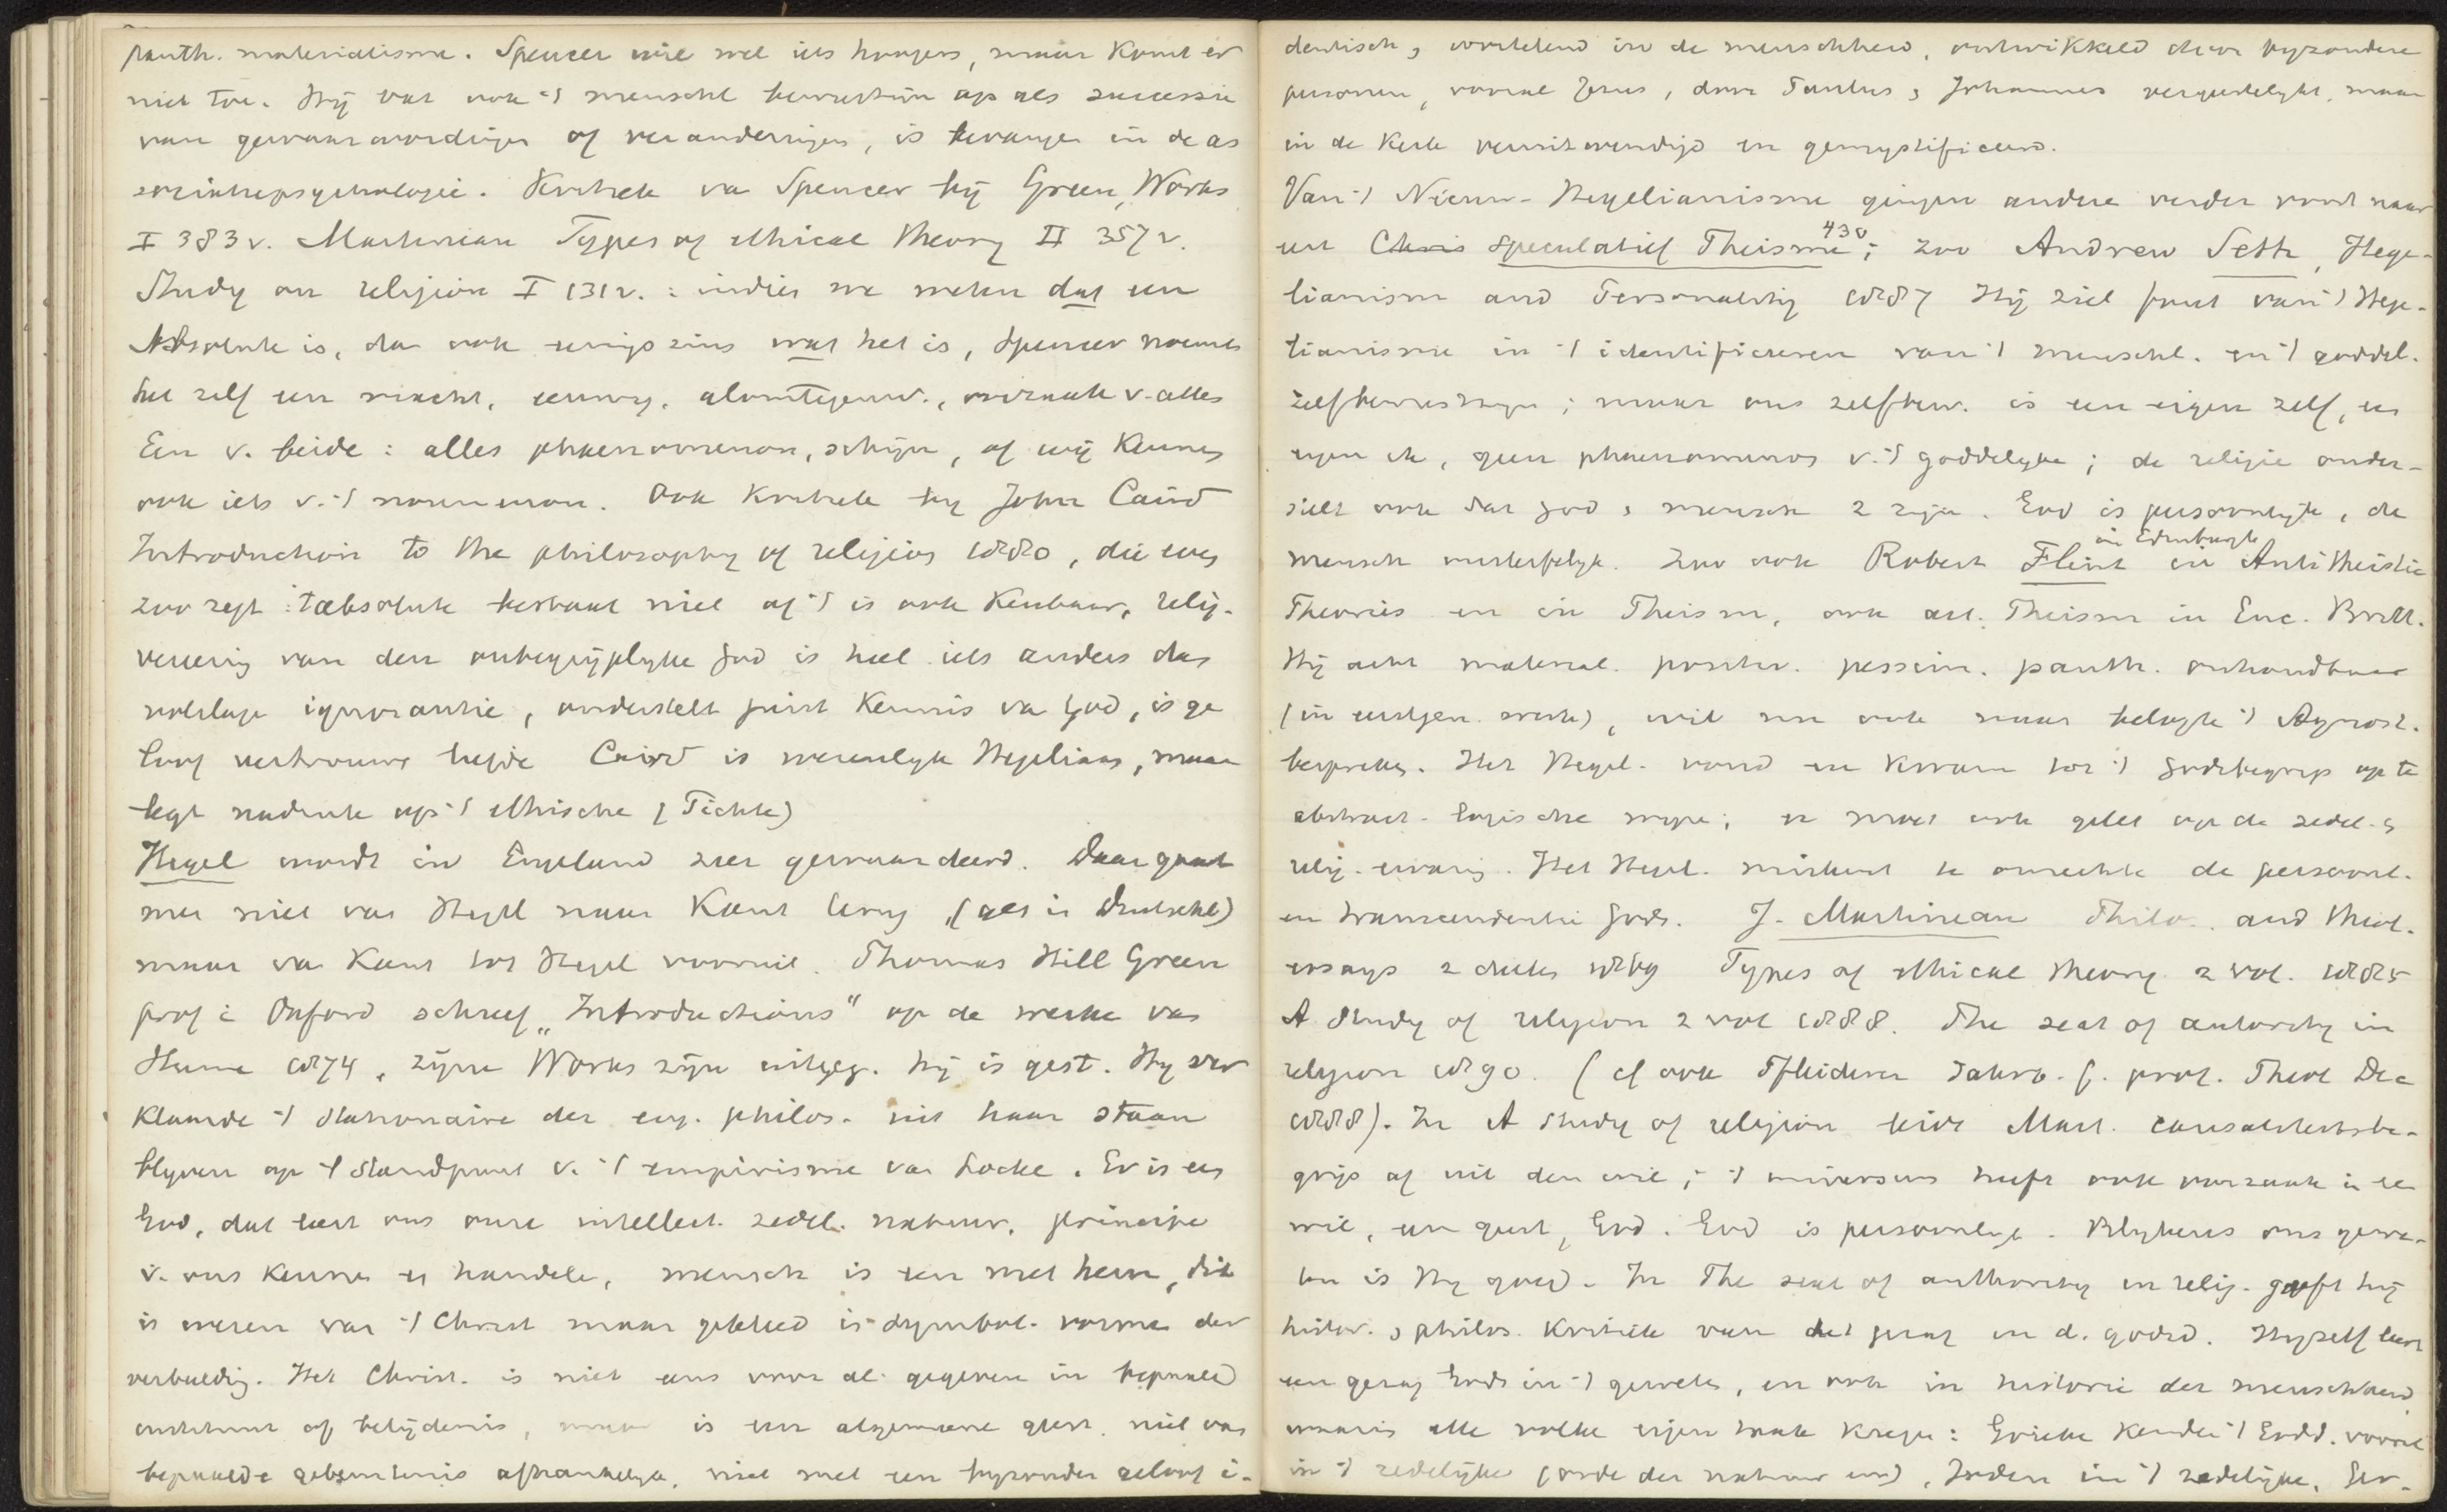 panth. materialisme. Spencer wil wel iets hoogers, maar komt er
niet toe. Hij vat ook 't menschel bewustzijn op als successie
van gewaarwordingen of veranderingen, is bevangen in de as
sociatiepsychologie. Kritiek van Spencer bij Green, Works
I 383 v. Martineau Types of ethical theory II 357 v.
Study on religion I 131 v. : indien we weten dat een
Absolute is, dan ook eenigszins wat het is, Spencer noemt
het zelf een macht, eeuwig, alomtegenw., oorzaak v. alles
Een v. beide : alles phaenomenon, schijn, of wij kennen
ook iets v. 't noumenon. Ook kritiek bij John Caird
Introduction to the philosophy of religion 1880, die even
zoo zegt : 't absolute bestaat niet of 't is ook kenbaar, relig.
vereering van den onbegrijpelijke God is heel iets anders dan
volslage ignorantie, onderstelt juist kennis van God, is ge
loof vertrouwe liefde Caird is wezenlijk Hegeliaan, maar
legt nadruk op 't ethische (Fichte)
Hegel wordt in Engeland zeer gewaardeerd. Daar gaat
men niet van Hegel naar Kant terug, (als in Duitschl)
maar van Kant tot Hegel vooruit. Thomas Hill Green
prof i Oxford schreef „Introductions" op de werke van
Hume 1874, zijne Works zijn uitgeg. hij is gest. Hij ver
klaarde 't stationaire der eng. philos. uit haar staan
blijven op 't standpunt v. 't empirisme van Locke. Er is een
God, dat leert ons onze intellect. zedel. natuur, principe
v. ons kennen en handele, mensch is een met hem, dit
is wezen van 't Christ maar gekleed in symbol. vorme der
verbeelding. Het Christ. is niet eens voor al gegeven in bepaald
instituut of belijdenis, maar is een algemeene geest, niet van
bepaalde gebeurtenis afhankelijk, niet met een bijzonder geloof i-
dentisch, wortelend in de menschheid, ontwikkeld door bijzondere
personen, vooral Jezus, door Paulus & Johannes vergeestelijkt, maar
in de Kerk veruitwendigd en gemystificeerd.
Van 't Nieuw-Hegelianisme gingen andere verder voort naar
een Chris speculatief Theisme 430 ; zoo Andrew Seth, Hege-
lianism and Personality 1887 Hij ziet fout van 't Hege-
lianisme in 't identificeren van 't menschl. en 't goddel.
zelfbewustzijn ; maar ons zelfbew. is een eigen zelf, een
eigen ik, geen phaenomenon v. 't goddelijke ; de religie onder-
stelt ook dat God & mensch 2 zijn. God is persoonlijk, de
mensch onsterfelijk. Zoo ook Robert Flint in Edinburgh in Antitheistic
Theories en in Theism, ook art. Theism in Enc. Britt.
Hij acht material. positiv. pessim. panth. onhoudbaar
(in eerstgen. werk), wil nu ook naar belofte 't Agnost.
bespreken. Het Hegel. vond en kwam tot 't Godsbegrip op te
abstract-logische wijze ; er moet ook gelet op de zedel. &
relig. ervaring. Het Hegel. miskent te onrechte de persoonl.
en transcendentie Gods. J. Martineau Philo. and theol.
essays 2 deelen 1869 Types of ethical theory 2 vol. 1885
A study of religion 2 vol 1888. The seat of autority in
religion 1890. (cf ook Pfleiderer Jahrb. f. prot. Theol Dec
1888). In A study of religion leidt Mart. causaliteitsbe-
grip af uit den wil ; 't universum heeft ook oorzaak in een
wil, een geest, God. God is persoonlijk. Blijkens ons gewe-
ten is Hij goed. In The seat of authority in relig. geeft hij
histor. & philos. kritiek van het gezag in d. godsd. Hijzelf leert
een gezag Gods in 't geweten, en ook in historie der menschheid
waarin alle volke eigen taak kregen : Grieke kenden 't Godd. vooral
in 't redelijke (orde der natuur enz), Joden in 't zedelijke, Ger-